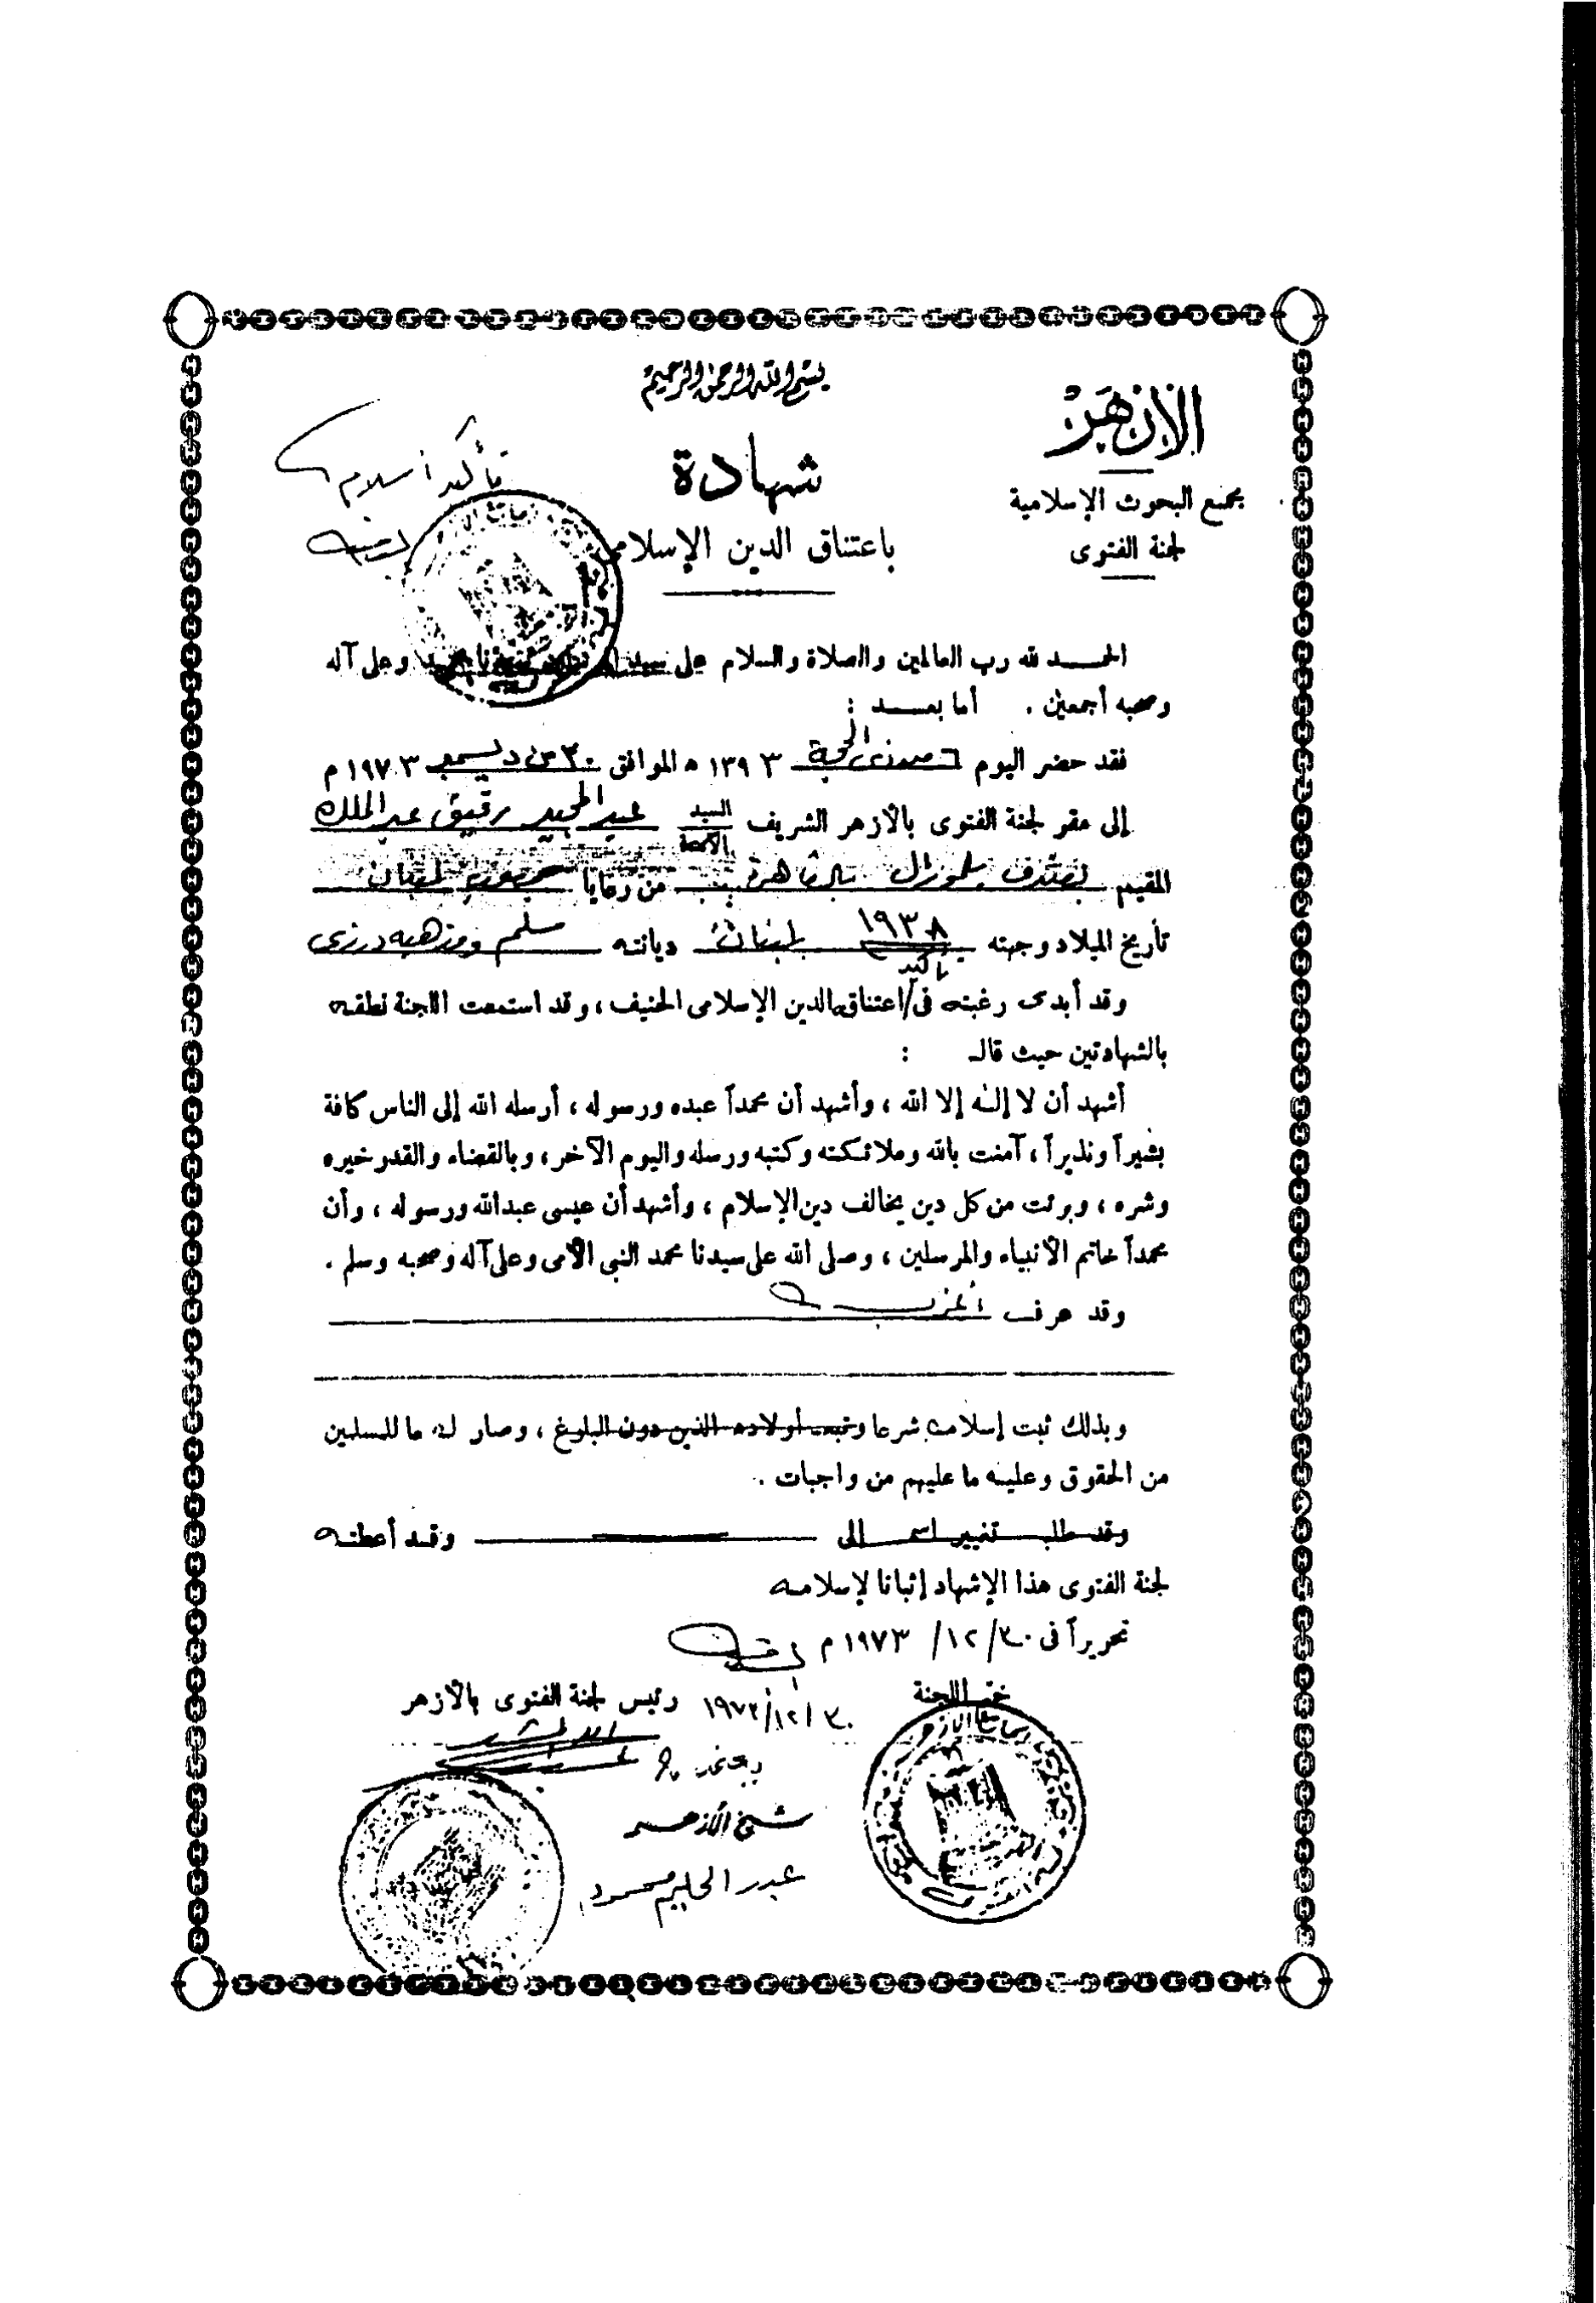 بسم الله الرحمن الرحيم
الأزهر
مجمع البحوث الإسلامية
لجنة الفتوى
شهادة
باعتناق الدين الإسلامى
تأكيد إسلام
الحمد لله رب العالمين والصلاة والسلام على سيدنا محمد وعلى آله
وصحبه أجمعين . أما بعد :
فقد حضر اليوم ٦ من ذى الحجة ١٣٩٣ ه الموافق ٣٠ من ديسمبر ١٩٧٣ م
إلى مقر لجنة الفتوى بالأزهر الشريف السيد عبد المجيد رفيق عبد الملك
الآنسة
المقيم بفندق بالقاهرة من رعايا جمهورية لبنان
تأريخ الميلاد وجهته ١٩٣٨ لبنان ديانته مسلم ومذهبه درزى
تأكيد
وقد أبدى رغبته فى اعتناقه الدين الإسلامى الحنيف ، وقد استمعت اللجنة نطقه
بالشهادتين حيث قال :
أشهد أن لا إله إلا الله ، وأشهد أن محمداً عبده ورسوله ، أرسله الله إلى الناس كافة
بشيراً ونذيراً ، آمنت بالله وملائكته وكتبه ورسله واليوم الآخر ، وبالقضاء والقدر خيره
وشره ، وبرئت من كل دين يخالف دين الإسلام ، وأشهد أن عيسى عبد الله ورسوله ، وأن
محمداً خاتم الأنبياء والمرسلين ، وصلى الله على سيدنا محمد النبى الأمى وعلى آله وصحبه وسلم .
وقد عرف
وبذلك ثبت إسلامه شرعا وتبعه أولاده الذين دون البلوغ ، وصار له ما للمسلمين
من الحقوق وعليه ما عليهم من واجبات .
وقد طلب تغيير اسم إلى وقد أعطته
لجنة الفتوى هذا الإشهاد إثباتا لإسلامه
تحريراً فى ٣٠ / ١٢ / ١٩٧٣ م
ختم اللجنة
٣٠ / ١٢ / ١٩٧٣ رئيس لجنة الفتوى بالأزهر
شيخ الأزهر
عبد الحليم محمود